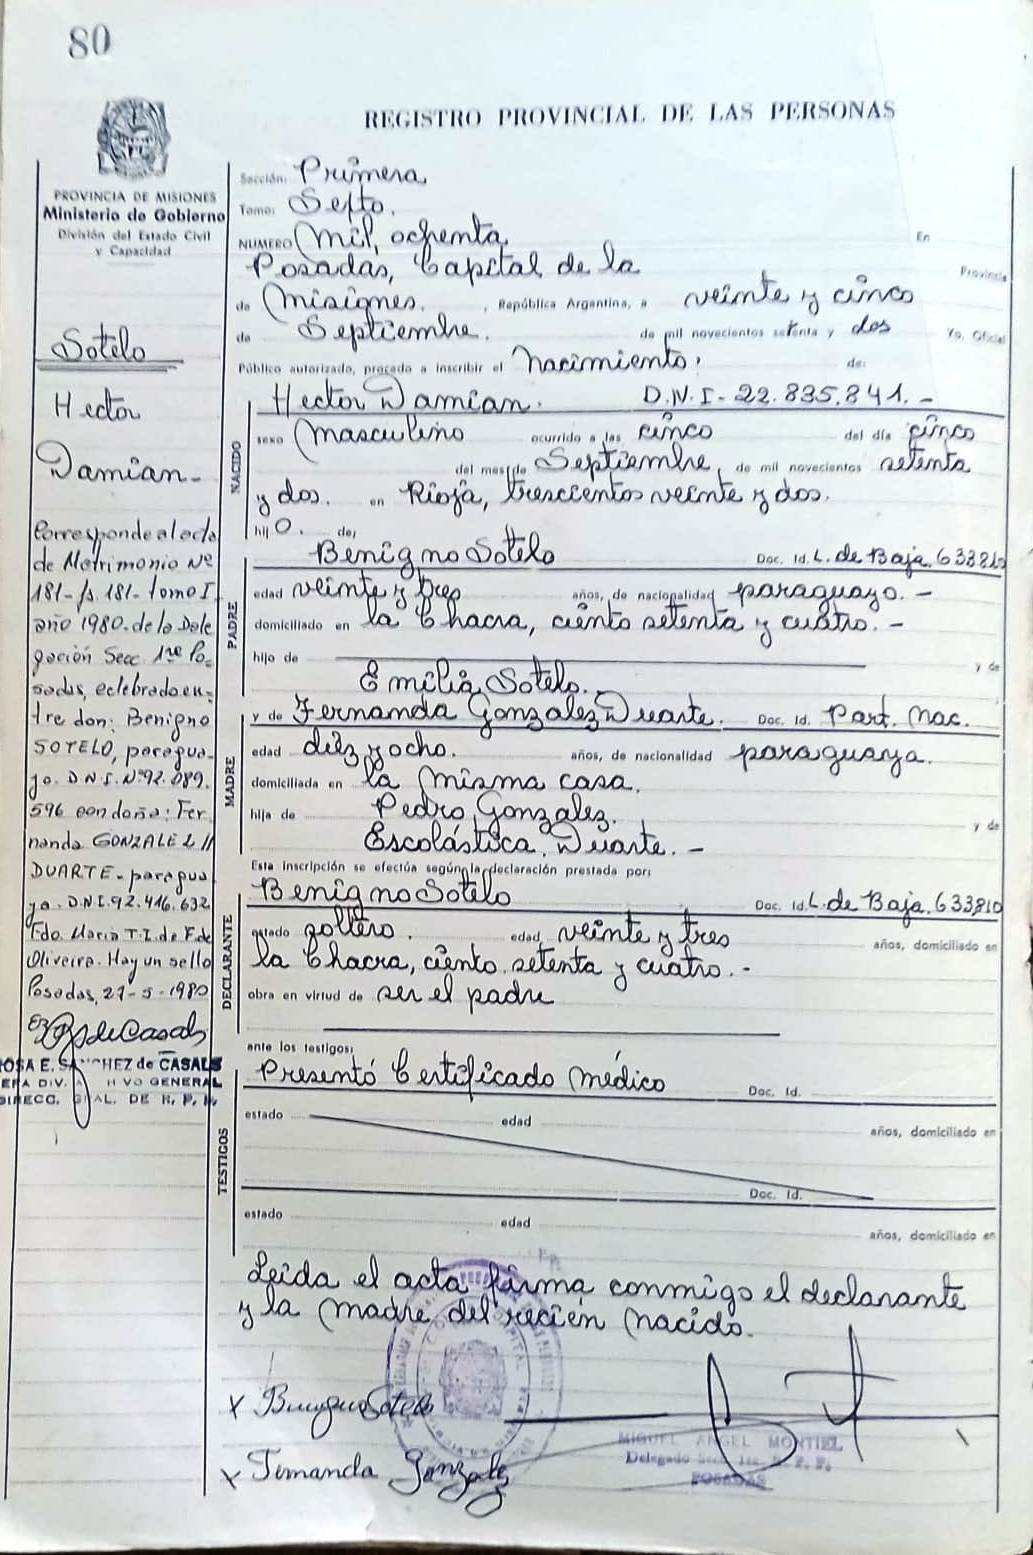 80
REGISTRO PROVINCIAL DE LAS PERSONAS
PROVINCIA DE MISIONES
Ministerio de Gobierno
División del Estado Civil
y Capacidad
Sección: Primera
Tomo: Septo.
NUMERO Mil, ochenta En
Posadas, Capital de la Provincia
de Misiones. , República Argentina, a veinte y cinco
de Septiembre. de mil novecientos setenta y dos Yo, Oficial
Público autorizado, procedo a inscribir el Nacimiento, de:
Hector Damian. D.N.I-22.835.841.-
NACIDO
sexo Masculino ocurrido a las cinco del día cinco
del mes de Septiembre, de mil novecientos setenta
y dos. en Rioja, trescientos veinte y dos.
hijO. de;
PADRE
Benigno Sotelo Doc. Id. L. de Baja. 633810
edad veinte y tres años, de nacionalidad paraguayo.-
domiciliado en la Chacra, ciento setenta y cuatro.-
hijo de y de
Emilia Sotelo.-
MADRE
y de Fernanda Gonzalez Duarte. Doc. Id. Part. Nac.
edad diez y ocho. años, de nacionalidad paraguaya.
domiciliada en la misma casa.
hija de Pedro Gonzalez. y de
Escolástica Duarte.-
Esta inscripción se efectúa según la declaración prestada por:
DECLARANTE
Benigno Sotelo Doc. Id. L. de Baja. 633810
estado soltero. edad veinte y tres años, domiciliado en
la Chacra, ciento setenta y cuatro.-
obra en virtud de ser el padre
ante los testigos:
TESTIGOS
Presentó Certificado médico Doc. Id.
estado edad años, domiciliado en
Doc. Id.
estado edad años, domiciliado en
Leida el acta firma conmigo el declarante
y la madre del recién nacido.
x Benigno Sotelo
x Fernanda Gonzalez
MIGUEL ANGEL MONTIEL
Delegado Secc. 1ra. R. P. P.
POSADAS
Sotelo
Hector
Damian-
Corresponde al acta
de Matrimonio Nº
181-fs. 181- tomo I
año 1980. de la Dele
gación Secc. 1ra Po-
sadas, celebrado en-
tre don: Benigno
SOTELO, paragua-
yo. D.N.I. Nº92.089.
596 con doña: Fer
nanda GONZALEZ //
DUARTE- paragua
ya. D.N.I. 92.416.632
Fdo. Maria T.Z. de F. de
Oliveira. Hay un sello
Posadas, 27-5-1980
ROSA E. SANCHEZ de CASALS
JEFA DIV. ARCHIVO GENERAL
DIRECC. GRAL. DE R. P. P.